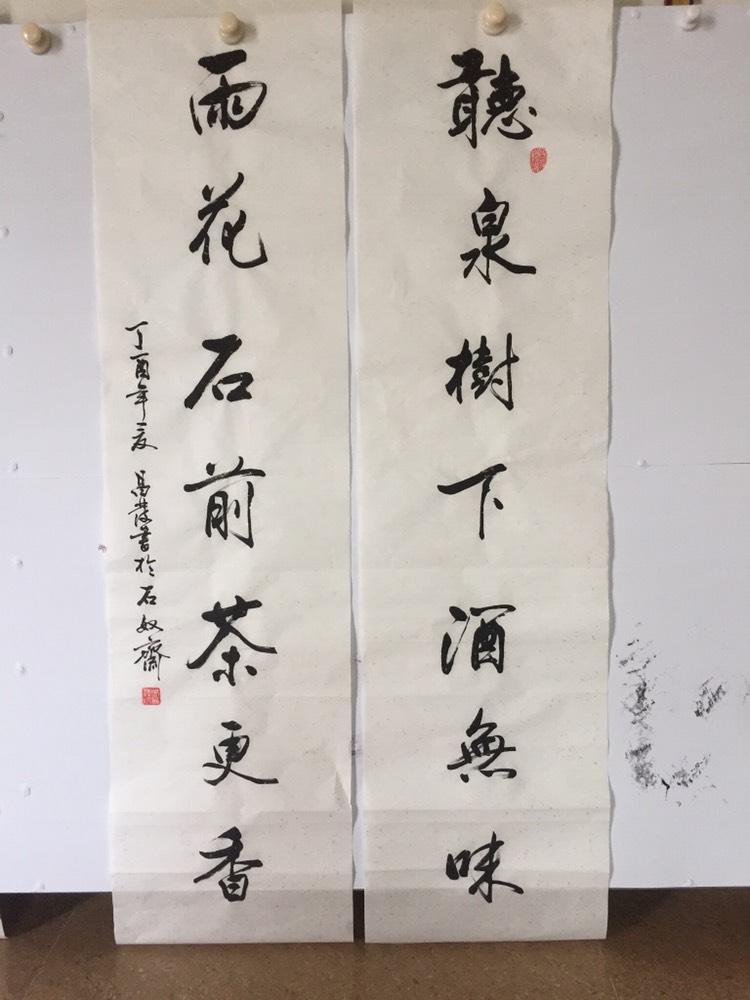 聽泉樹下酒無味
雨花石前茶更香
丁酉年夏 昌發書於石奴齋